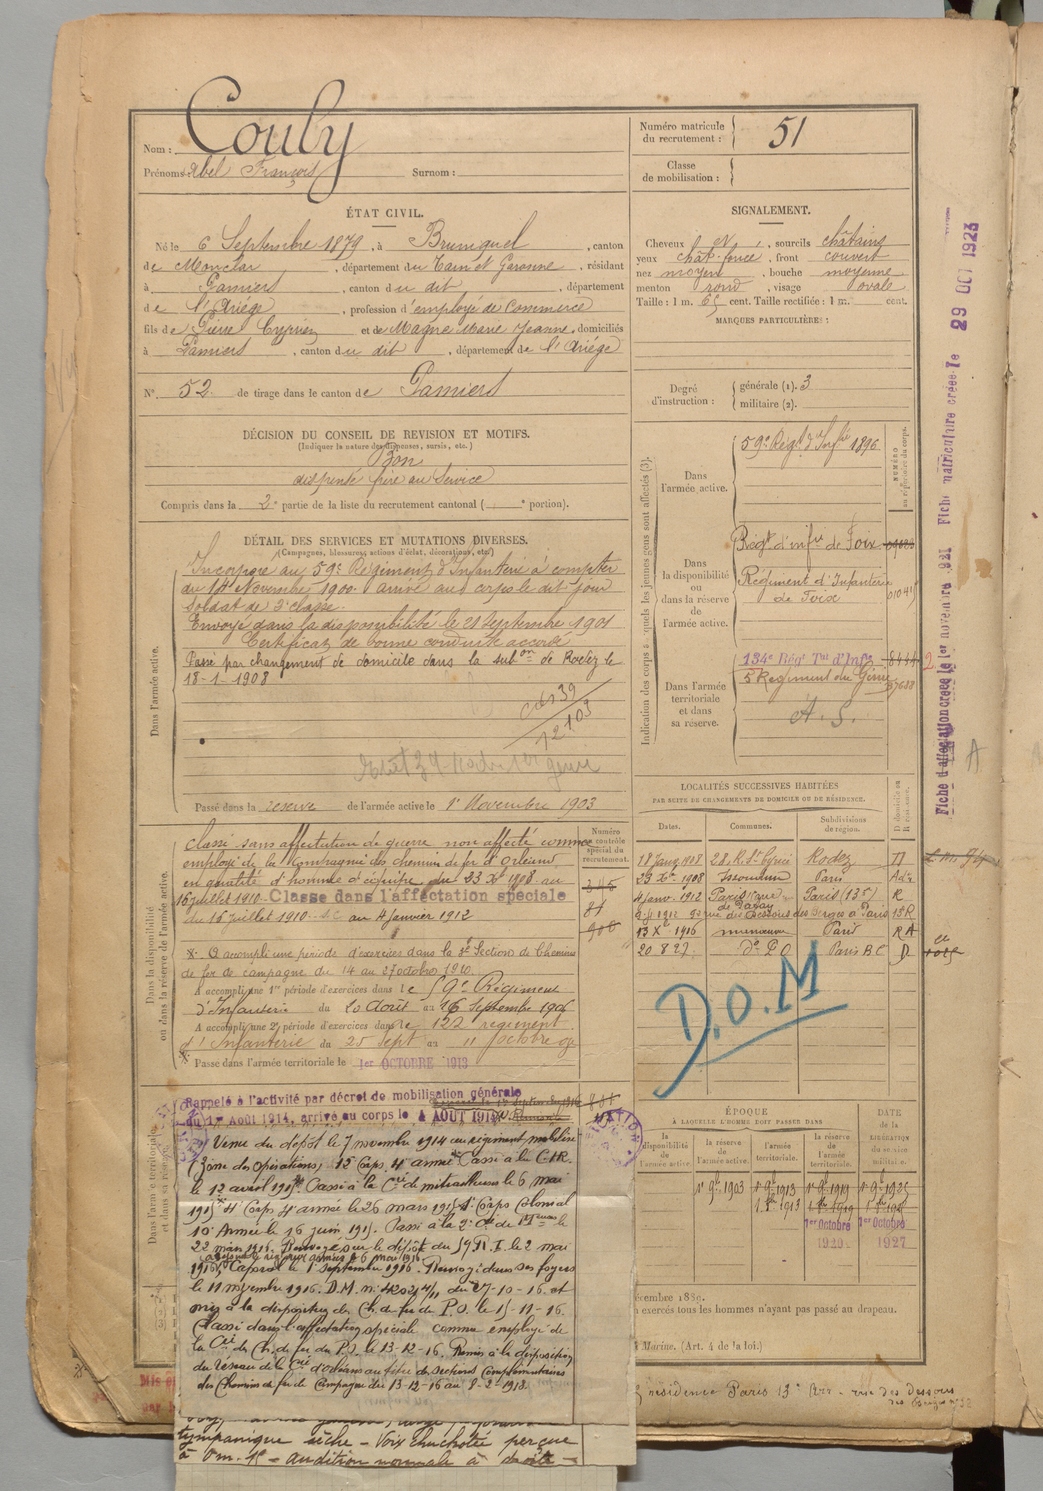 Nom : Couly
Prénoms : Abel François Surnom :
Numéro matricule du recrutement : 51
Classe de mobilisation :
ÉTAT CIVIL.
Né le 6 Septembre 1879, à Bruniquel, canton
de Monclar, département du Tarn et Garonne, résidant
à Pamiers, canton du dit, département
de l'Ariége, profession d'employé de Commerce
fils de Pierre Cyprien et de Magne Marie Jeanne, domiciliés
à Pamiers, canton du dit, département de l'Ariége
N° 52 de tirage dans le canton de Pamiers
SIGNALEMENT.
Cheveux N, sourcils châtains
yeux chât. foncé, front couvert
nez moyen, bouche moyenne
menton rond, visage ovale
Taille : 1 m. 65 cent. Taille rectifiée : 1 m. cent.
MARQUES PARTICULIÈRES :
Degré d'instruction : générale (1). 3
militaire (2).
DÉCISION DU CONSEIL DE REVISION ET MOTIFS.
(Indiquer la nature des dispenses, sursis, etc.)
Bon
dispensé frère au Service
Compris dans la 2e partie de la liste du recrutement cantonal ( e portion).
DÉTAIL DES SERVICES ET MUTATIONS DIVERSES.
(Campagnes, blessures, actions d'éclat, décorations, etc.)
Dans l'armée active.
Incorporé au 59e Régiment d'Infanterie à compter
au 14 Novembre 1900. arrivé au corps le dit jour
Soldat de 2e classe.
Envoyé dans la disponibilité le 21 Septembre 1901
Certificat de bonne conduite accordé
Passé par changement de domicile dans la subon de Rodez le
18-1-1908
Passé dans la réserve de l'armée active le 1er Novembre 1903
Indication des corps auxquels les jeunes gens sont affectés (3).
NUMÉRO au répertoire du corps.
Dans l'armée active.
59e Régt d'Infie 1896
Dans la disponibilité ou dans la réserve de l'armée active.
Régt d'infie de Foix
Régiment d'Infanterie
de Foix
Dans l'armée territoriale et dans sa réserve.
134e Régt Tal d'Infie
5 Régiment du Génie
A. S.
Dans la disponibilité ou dans la réserve de l'armée active.
Numéro du contrôle spécial du recrutement.
Classé sans affectation de guerre non affecté comme
employé de la Compagnie des chemin de fer d'Orléans
en qualité d'homme d'équipe, du 23 Xbre 1908 au
15 juillet 1910. Classé dans l'affectation spéciale
du 15 juillet 1910 au 4 janvier 1912
A accompli une période d'exercices dans la 3e Section de Chemins
de fer de campagne du 14 au 27 octobre 1910.
A accompli une 1re période d'exercices dans le 59e Régiment
d'Infanterie du 20 Août au 16 Septembre 1906
A accompli une 2e période d'exercices dans le 122 régiment
d'Infanterie du 25 Sept au 11 octobre 09
Passé dans l'armée territoriale le 1er OCTOBRE 1913
LOCALITÉS SUCCESSIVES HABITÉES
PAR SUITE DE CHANGEMENTS DE DOMICILE OU DE RÉSIDENCE.
Dates. Communes. Subdivisions de région. D domicile ou R résidence.
18 Janv 1908 28. R. St Cyrice Rodez D
23 Xbre 1908 Issoudun Paris
4 Janv. 1912 Paris 17 rue de Patay Paris (13e) R
92 rue des Dessous des Berges à Paris 13 R
13 Xe 1916 Paris R A
20 8 27. do P O Paris B C D
D.O.M
Rappelé à l'activité par décret de mobilisation générale
du 1er Août 1914, arrivé au corps le 4 AOUT 1914
Venu du dépôt le 7 novembre 1914 au régiment mobilisé
(Zone des opérations) 12 Corps, 4e armée Passé à la C.H.R.
le 12 avril 1915. Passé à la Cie de mitrailleuses le 6 mai
1915 4e Corps 4e armée le 26 mars 1915 1er Corps Colonial
10e Armée le 16 juin 1915. Passé à la 2e Cie de Mtreuses le
22 mars 1916. Renvoyé sur le dépôt du 59 R. I. le 2 mai
1916. Caporal le 1er septembre 1916. Renvoyé dans ses foyers
le 11 novembre 1916. D.M. n° du 27-10-16. et
mis à la disposition des Ch. de fer de P.O. le 15-11-16.
Classé dans l'affectation spéciale comme employé de
la Cie des Ch. de fer du P.O. le 13-12-16. Remis à la disposition
du réseau de la Cie d'Orléans au titre des Sections Complémentaires
des Chemins de fer de Campagne du 13-12-16 au 8-2-1918.
tympanique sèche - Voix chuchotée perçue
à 0m.15 - audition normale à droite -
ÉPOQUE
À LAQUELLE L'HOMME DOIT PASSER DANS
DATE DE LA LIBÉRATION du service militaire.
la disponibilité de l'armée active. la réserve de l'armée active. l'armée territoriale. la réserve de l'armée territoriale.
1er 9bre 1903 1er 9bre 1913 1er 9bre 1919 1er 9bre 1925
1er Octobre 1er Octobre
1929 1927
décembre 1889.
exercés tous les hommes n'ayant pas passé au drapeau.
Marine. (Art. 4 de la loi.)
résidence Paris 13e Arr. - rue des Dessous
des Berges n° 92
Fiche d'affectation créée le 1er novembre 921 Fiche matriculaire créée le 29 OCT 1923